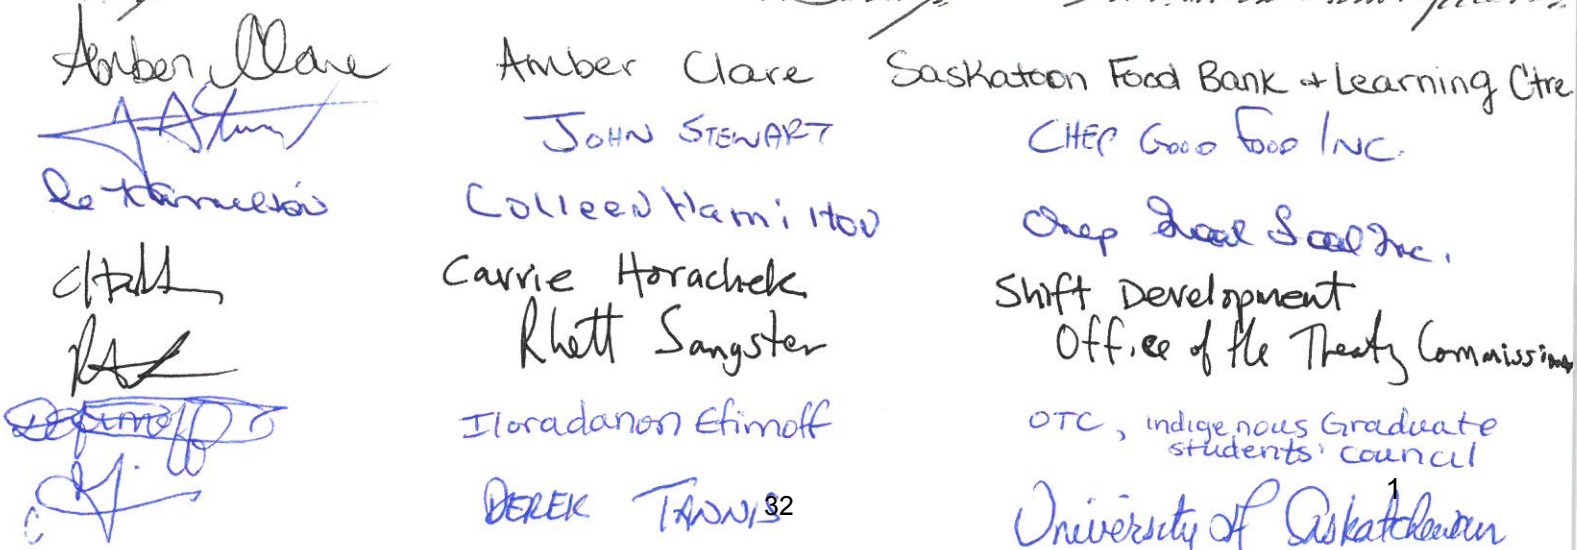 Amber Clare Amber Clare Saskatoon Food Bank + Learning Ctre
JOHN STEWART CHEP GOOD FOOD INC.
Colleen Hamilton Chep Good Food Inc.
Carrie Horachek Shift Development
Rhett Sangster Office of the Treaty Commissioner
Iloradanon Efimoff OTC, indigenous Graduate
students' council
DEREK TANNIS University of Saskatchewan
32
1